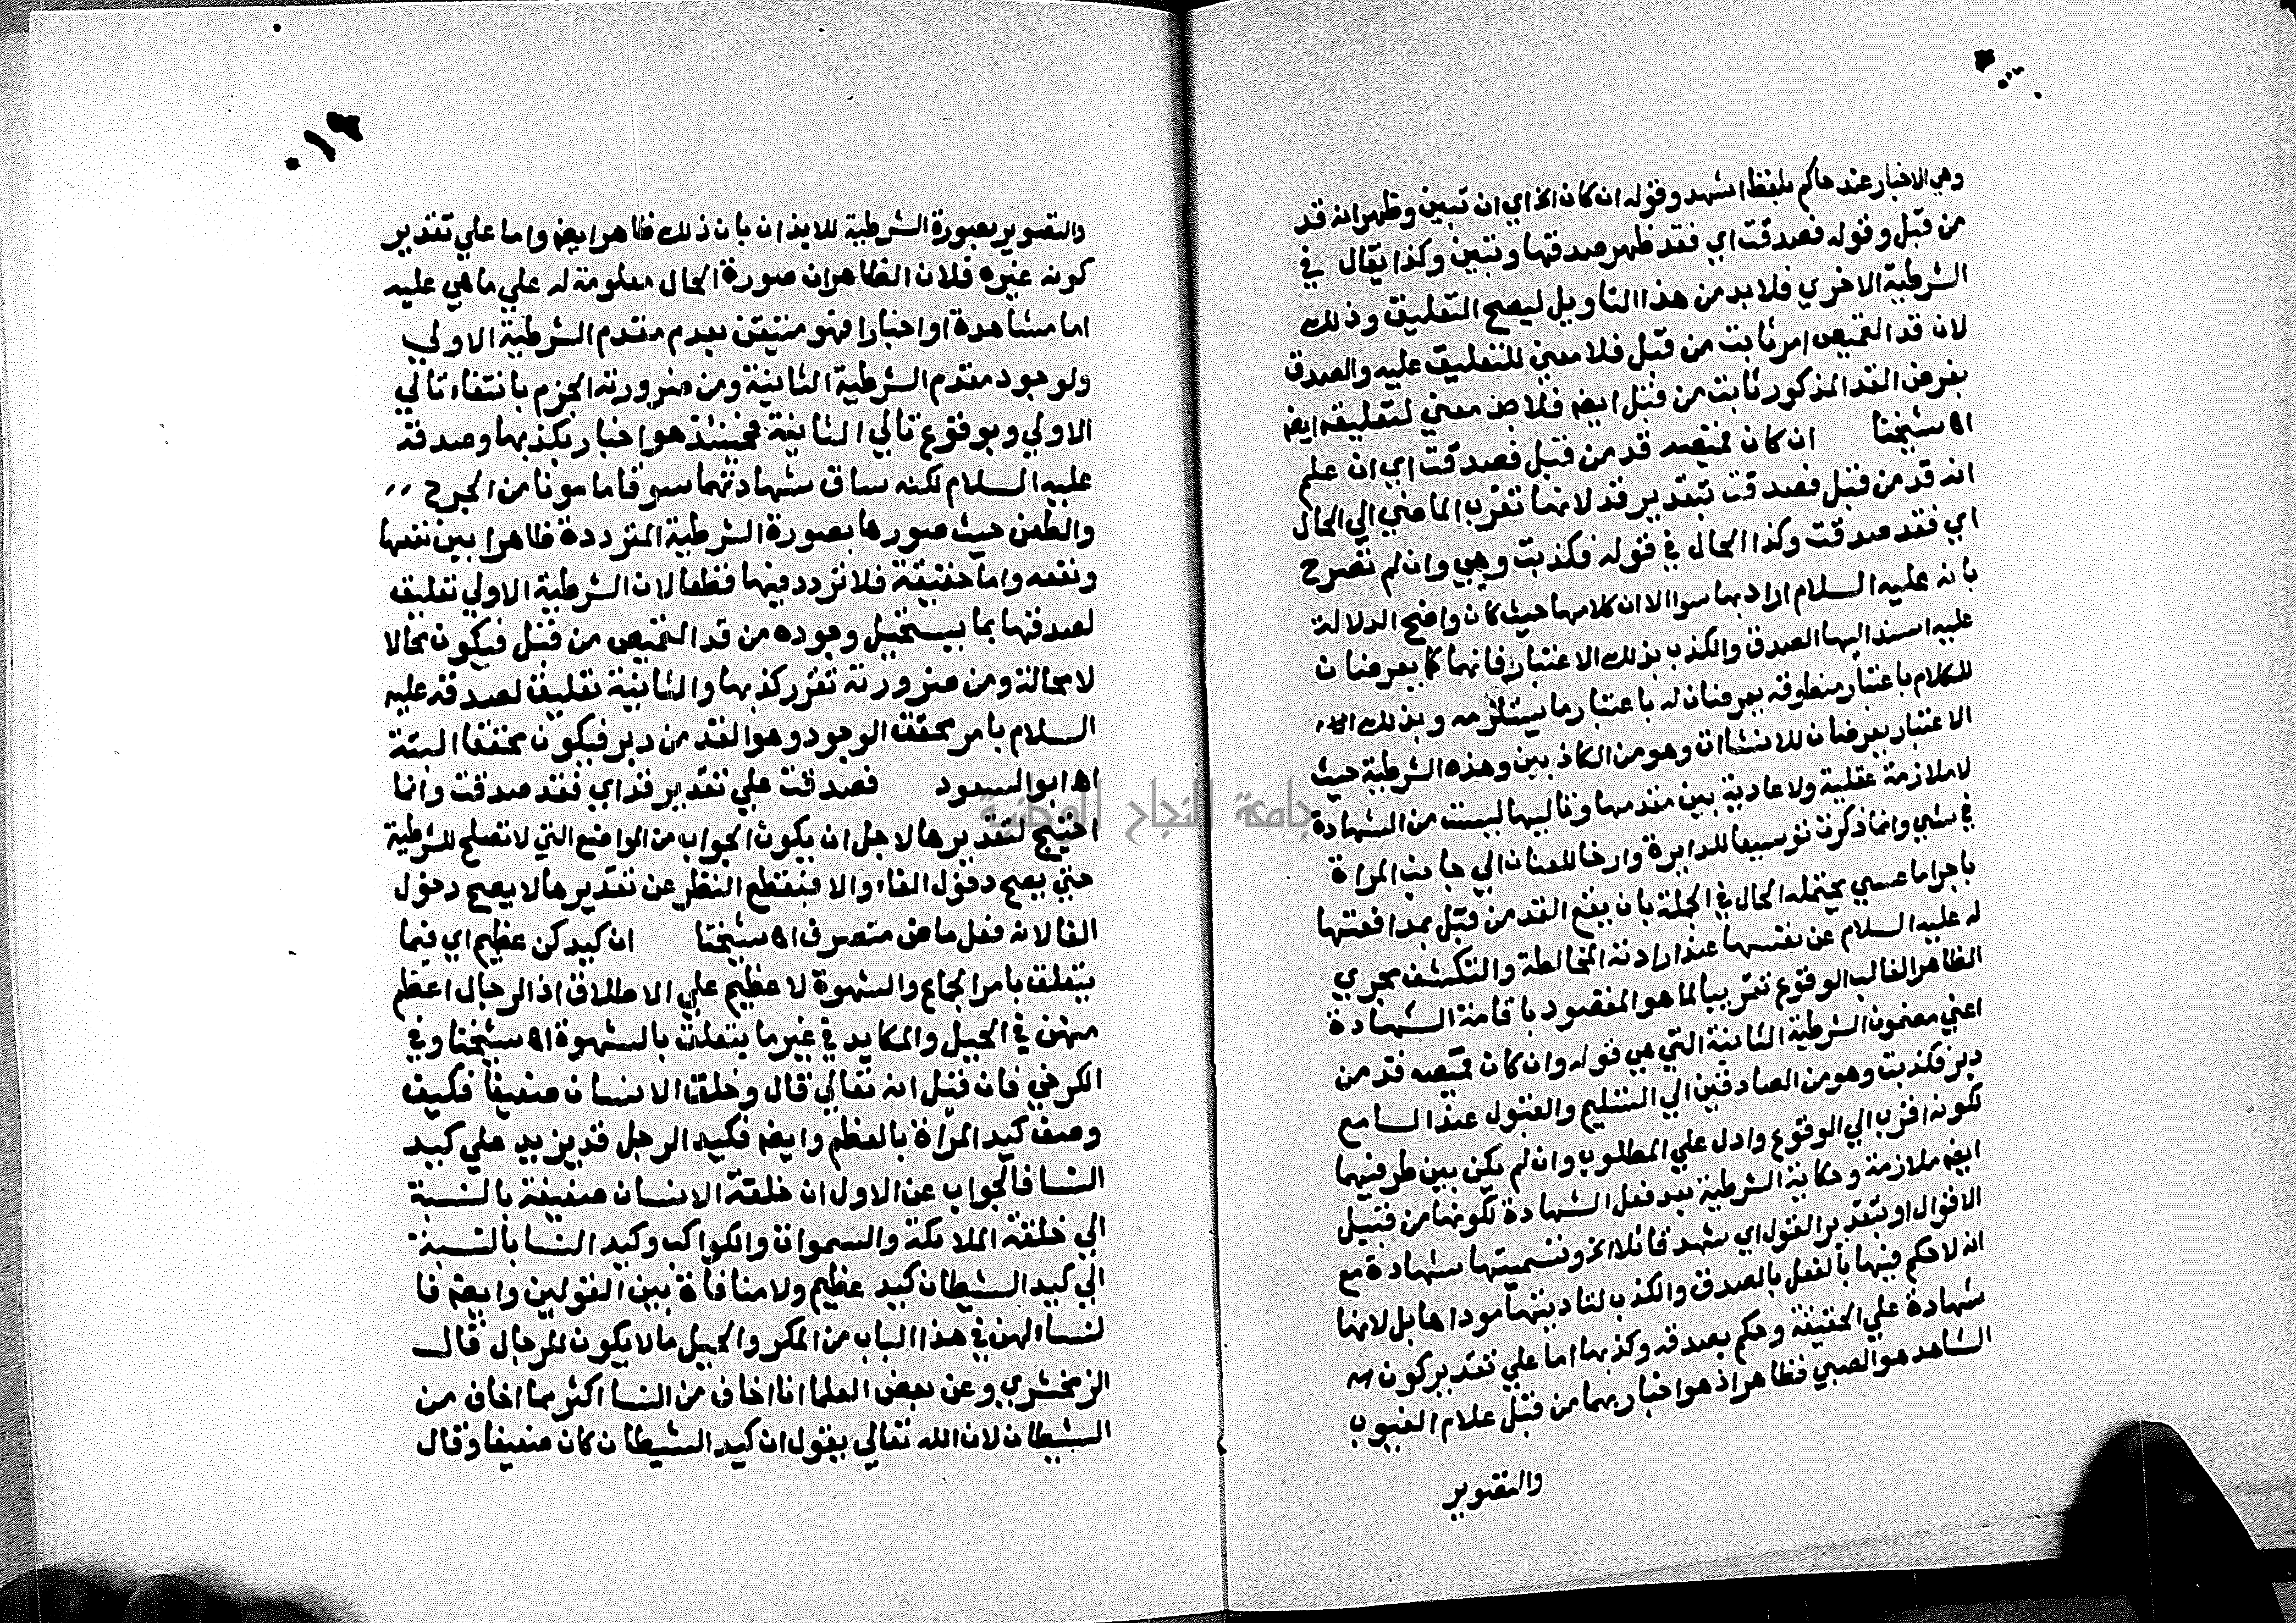 وهي الاخبار عند حاكم بلفظ اشهد وقوله ان كان الخ اي ان تبين وظهر انه قد
من قبل وقوله فصدقت اي فقد ظهر صدقها وتبين وكذا يقال في
الشرطية الاخري فلا بد من هذا التاويل ليصح التعليق وذلك
لان قد القميص امر ثابت من قبل فلا معني للتعليق عليه والصدق
بفرض القد المذكور ثابت من قبل ايضه فلا معني لتعليقه ايضه
اه شيخنا ان كان قميصه قد من قبل فصدقت اي ان علم
انه قد من قبل فصدقت بتقدير قد لانها تقرب الماضي الي الحال
اي فقد صدقت وكذا الحال في قوله فكذبت وهي وان لم تصرح
بانه عليه السلام اراد بها سوا الا ان كلامها حيث كان واضح الدلالة
عليه اسند اليها الصدق والكذب بذلك الاعتبار فانهما كما يعرضان
للكلام باعتبار منطوقه يعرضان له باعتبار ما يستلزمه وبذلك
الاعتبار يعرضان للانشاات وهو من الكاذبين وهذه الشرطية حيث
لا ملازمة عقلية ولا عادية بين مقدمها وتاليها ليست من الشهادة
في شي وانما ذكرت توسيعا للدايرة وارخا للعنان الي جانب المراة
باجرا ما عسي يحتمله الحال في الجملة بان يقع القد من قبل بمدافعتها
له عليه السلام عن نفسها عند ارادته المخالطة والتكشف مجري
الظاهر الغالب الوقوع تقريبا لما هو المقصود باقامة الشهادة
اعني مضمون الشرطية الثانية التي هي قوله وان كان قميصه قد من
دبر فكذبت وهو من الصادقين الي التسليم والقبول عند السامع
لكونه اقرب الي الوقوع وادل علي المطلوب وان لم يكن بين طرفيهما
ايضه ملازمة وحكاية الشرطية بعد فعل الشهادة لكونها من قبيل
الاقوال او بتقدير القول اي شهد قائلا الخ وتسميتها شهادة مع
انه لا حكم فيها بالفعل بالصدق والكذب لتاديتها موداها بل لانها
شهادة علي الحقيقة وحكم بصدقه وكذبها اما علي تقدير كون
الشاهد هو الصبي فظاهر اذ هو اخبار بهما من قبل علام الغيوب
والتصوير
٠١٩
والتصوير بصورة الشرطية للايذان بان ذلك ظاهر ايضه واما علي تقدير
كونه غيره فلان الظاهر ان صورة الحال معلومة له علي ما هي عليه
اما مشاهدة او اخبارا فهو متيقن بعدم مقدم الشرطية الاولي
ولوجود مقدم الشرطية الثانية ومن ضرورته الجزم بانتفاء تالي
الاولي وبوقوع تالي الثانية فحينئذ هو اخبار بكذبها وصدقه
عليه السلام لكنه ساق شهادتهما سوقا مامونا من الجرح
والطعن حيث صورها بصورة الشرطية المترددة ظاهرا بين نفعها
ونفعه واما حقيقة فلا تردد فيها قطعا لان الشرطية الاولي تعليق
لصدقها بما يستحيل وجوده من قد القميص من قبل فيكون محالا
لا محالة ومن ضرورته تقرر كذبها والثانية تعليق لصدقه عليه
السلام بامر محقق الوجود وهو القد من دبر فيكون محققا البتة
اه ابو السعود فصدقت علي تقدير قد اي فقد صدقت وانما
احتيج لتقديرها لاجل ان يكون الجواب من المواضع التي لا تصلح للشرطية
حتي يصح دخول الفاء والا فبقطع النظر عن تقديرها لا يصح دخول
الفا لانه فعل ماض متصرف اه شيخنا ان كيدكن عظيم اي فيما
يتعلق بامر الجماع والشهوة لا عظيم علي الاطلاق اذ الرجال اعظم
منهن في الحيل والمكايد في غير ما يتعلق بالشهوة اه شيخنا وفي
الكرخي فان قيل انه تعالي قال وخلق الانسان ضعيفا فكيف
وصف كيد المراة بالعظم وايضه فكيد الرجل قد يزيد علي كيد
النسا فالجواب عن الاول ان خلقة الانسان ضعيفة بالنسبة
الي خلقة الملايكة والسموات والكواكب وكيد النسا بالنسبة
الي كيد الشيطان كيد عظيم ولا منافاة بين القولين وايضه فا
لنساء لهن في هذا الباب من المكر والحيل ما لا يكون للرجال قال
الزمخشري وعن بعض العلما انا اخاف من النسا اكثر مما اخاف من
الشيطان لان الله تعالي يقول ان كيد الشيطان كان ضعيفا وقال
جامعة النجاح الوطنية